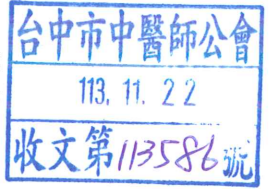 台中市中醫師公會
113. 11. 22
收文第113586號